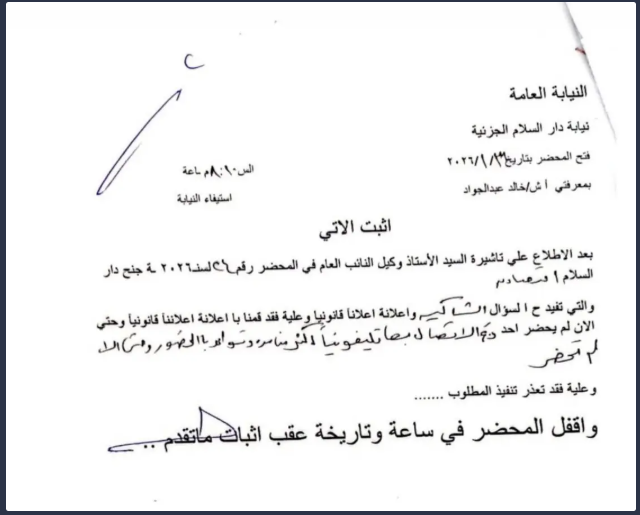 النيابة العامة
نيابة دار السلام الجزئية
فتح المحضر بتاريخ ٢٠٢٦/١/١٣ الس ٨:١٠م ـاعة
بمعرفتي أ ش/خالد عبدالجواد استيفاء النيابة
اثبت الاتي
بعد الاطلاع علي تاشيرة السيد الأستاذ وكيل النائب العام في المحضر رقم لسنـ ٢٠٢٦ ـة جنح دار
السلام اقتصادى
والتي تفيد ح السؤال الشاكيه واعلانة اعلاناً قانونيا وعلية فقد قمنا با اعلانة اعلاننأ قانونيأ وحتي
الان لم يحضر احد وتم الاتصال بها تليفونياً اكثر من مره با الحضور وحتى الا
لم تحضر
وعلية فقد تعذر تنفيذ المطلوب .......
واقفل المحضر في ساعة وتاريخة عقب اثبات ماتقدم ..